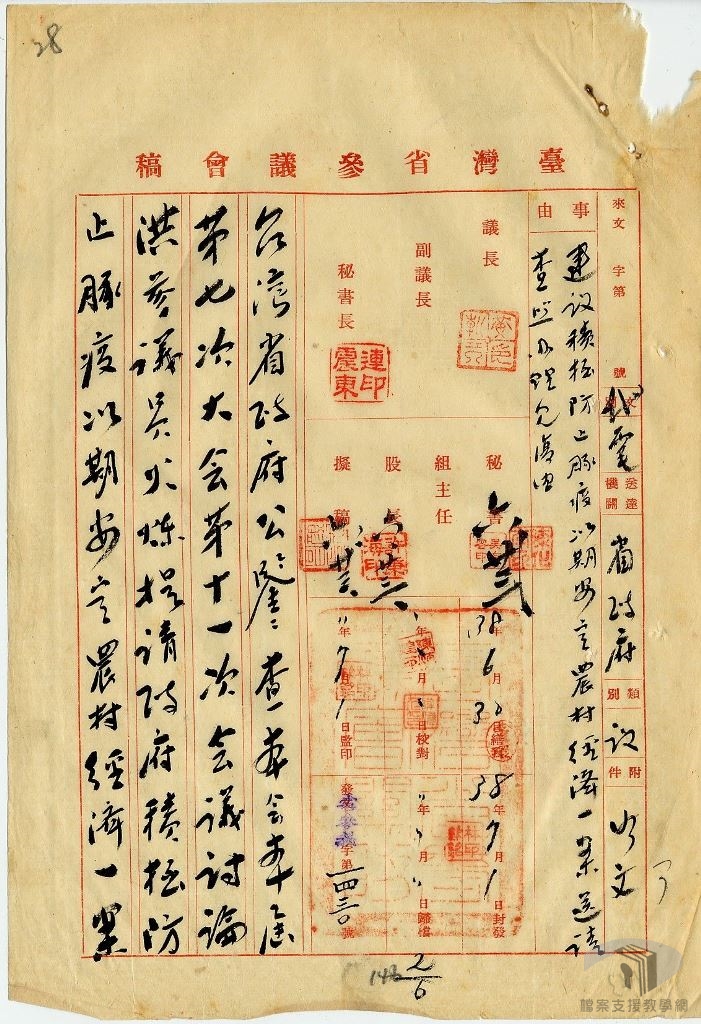 28
臺灣省參議會稿
來文 字第 號
文別 代電
送達機關 省政府
類別 議
附件 如文
事由 建议積极防止豚疫以期安定農村經濟一案送请
查照办理見復由
議長
副議長
秘書長 連震東印
秘書 六 廿三
組主任
股長
擬稿
38年6月30日繕寫
38年7月1日封發
年 月 日校對
年 月 日歸檔
〃年7月1日監印
發文 字第一四三〇號
台湾省政府公鑒：查本会本屆
第七次大会第十一次会議讨論
洪參議員火煉提请政府積极防
止豚疫以期安定農村經濟一案
148
2/6
檔案支援教學網